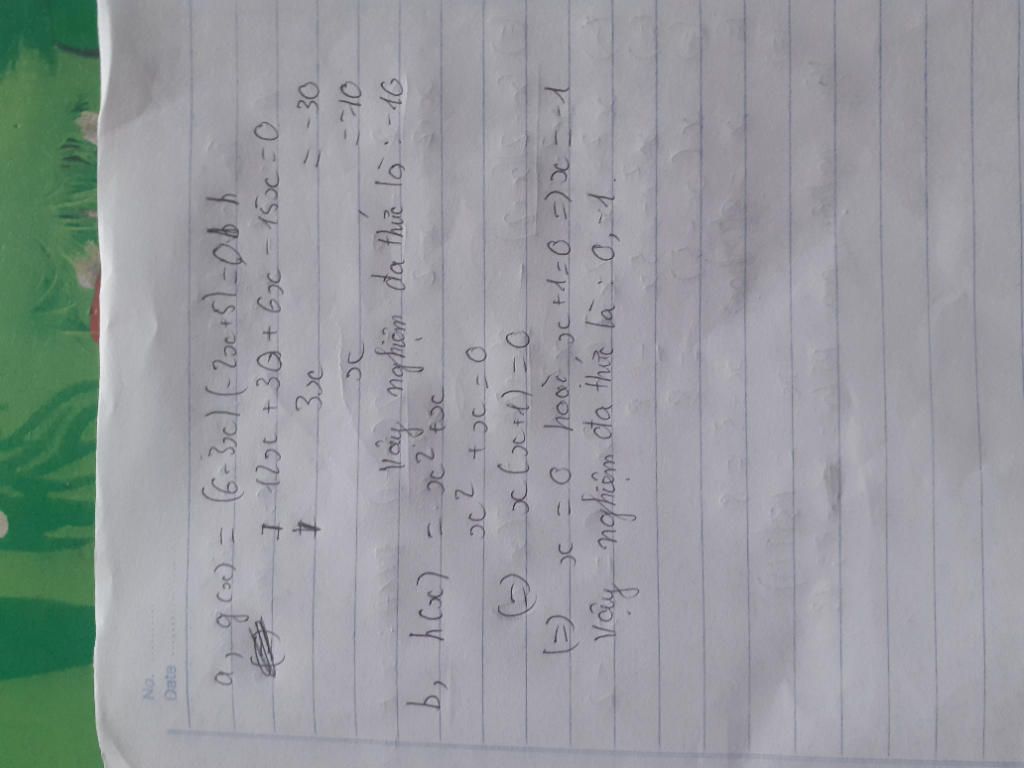 No.
Date
a, g(x) = (6-3x)(-2x+5)=0
-12x+30+6x-15x=0
3x = -30
x =-10
Vậy nghiệm đa thức là : -10
b, h(x) = x² +x
x² + x = 0
(=) x(x+1)=0
(=) x = 0 hoặc x+1=0 =) x=-1
Vậy nghiệm đa thức là : 0,-1.